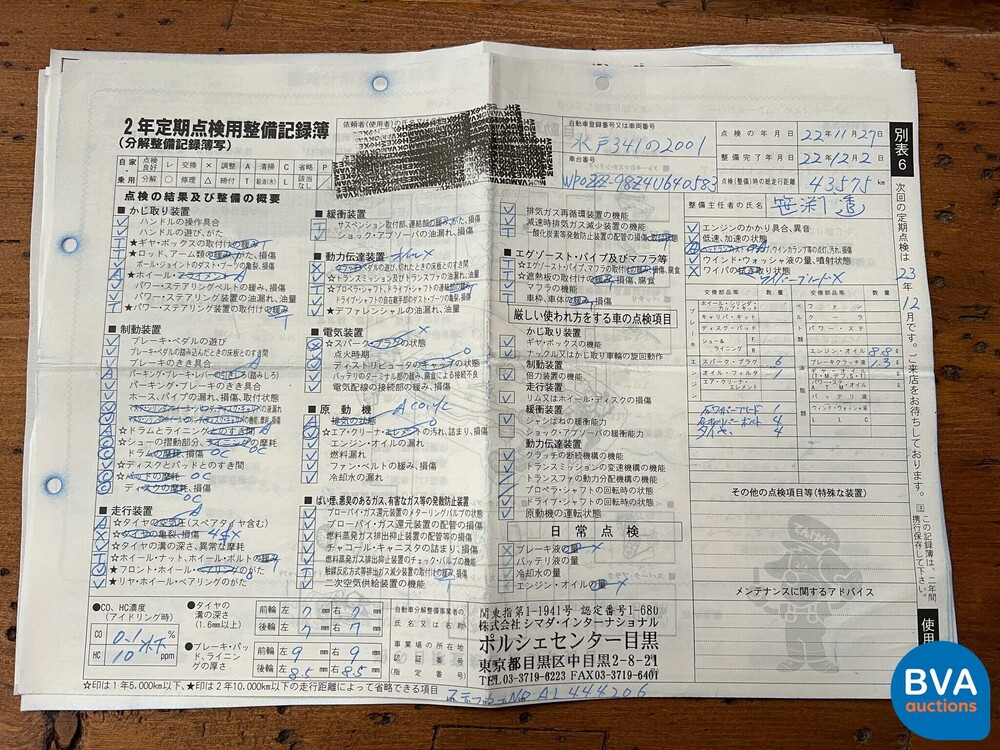 2年定期点検用整備記録簿
(分解整備記録簿写)
依頼者(使用者)の氏名又は
自動車登録番号又は車両番号
水戸341の2001
車台番号
WP0ZZZ-98Z4U640583
点検の年月日 22年11月27日
整備完了年月日 22年12月2日
点検(整備)時の総走行距離 43575 km
整備主任者の氏名
別表6
次回の定期点検は 23年12月です。ご来店をお待ちしております。
注 この記録簿は、二年間携行保存して下さい。
使用
自家・乗用
点検良好 レ 交換 × 調整 A 清掃 C 省略 P
分解 ○ 修理 △ 締付 T 給油(水) L 該当なし
点検の結果及び整備の概要
■かじ取り装置
ハンドルの操作具合
ハンドルの遊び、がた
★ギヤ・ボックスの取付けの緩み T
★ロッド、アーム類の緩み、がた、損傷
ボール・ジョイントのダスト・ブーツの亀裂、損傷
★ホイール・アライメント
パワー・ステアリングベルトの緩み、損傷
パワー・ステアリング装置の油漏れ、油量
★パワー・ステアリング装置の取付けの緩み
T
■制動装置
ブレーキ・ペダルの遊び
ブレーキ・ペダルの踏み込んだときの床板とのすき間
ブレーキのきき具合
パーキング・ブレーキ・レバーの引きしろ(踏みしろ)
パーキング・ブレーキのきき具合
ホース、パイプの漏れ、損傷、取付状態
☆ドラムとライニングとのすき間
☆シューの摺動部分、ライニングの摩耗
ドラムの摩耗、損傷
☆ディスクとパッドとのすき間
☆パッドの摩耗
ディスクの摩耗、損傷
■走行装置
☆タイヤの空気圧(スペアタイヤ含む)
☆タイヤの亀裂、損傷
☆タイヤの溝の深さ、異常な摩耗
☆ホイール・ナット、ホイール・ボルトの緩み
★フロント・ホイール・ベアリングのがた
★リヤ・ホイール・ベアリングのがた
■緩衝装置
サスペンション取付部、連結部の緩み、がた、損傷
ショック・アブソーバの油漏れ、損傷
■動力伝達装置
クラッチ・ペダルの遊び、切れたときの床板とのすき間
☆トランスミッション、トランスファの油漏れ、油量
☆プロペラ・シャフト、ドライブ・シャフトの連結部の緩み
ドライブ・シャフトの自在継手部のダスト・ブーツの亀裂、損傷
★デファレンシャルの油漏れ、油量
■電気装置
☆スパーク・プラグの状態
点火時期
ディストリビュータのキャップの状態
バッテリのターミナル部の緩み、腐食による接続不良
電気配線の接続部の緩み、損傷
■原動機
A CO.HC
排気の状態
☆エア・クリーナ・エレメントの汚れ、詰まり、損傷
エンジン・オイルの漏れ
燃料漏れ
ファン・ベルトの緩み、損傷
冷却水の漏れ
■ばい煙、悪臭のあるガス、有害なガス等の発散防止装置
ブローバイ・ガス還元装置のメターリングバルブの状態
ブローバイ・ガス還元装置の配管の損傷
燃料蒸発ガス排出抑止装置の配管等の損傷
チャコール・キャニスタの詰まり、損傷
燃料蒸発ガス排出抑止装置のチェック・バルブの機能
触媒反応方式等排出ガス減少装置の取付けの緩み、損傷
二次空気供給装置の機能
排気ガス再循環装置の機能
減速時排気ガス減少装置の機能
一酸化炭素等発散防止装置の配管の損傷、取付状態
■エグゾースト・パイプ及びマフラ等
☆エグゾースト・パイプ、マフラの取付けの緩み、損傷、腐食
☆遮熱板の取付けの緩み、損傷、腐食
マフラの機能
車枠、車体の緩み、損傷
厳しい使われ方をする車の点検項目
かじ取り装置
ギヤ・ボックスの機能
ナックル又はかじ取り車輪の旋回動作
制動装置
倍力装置の機能
走行装置
リム又はホイール・ディスクの損傷
緩衝装置
シャシばねの機能
ショック・アブソーバの緩衝能力
動力伝達装置
クラッチの断続機構の機能
トランスミッションの変速機構の機能
トランスファの動力分配機構の機能
プロペラ・シャフトの回転時の状態
ドライブ・シャフトの回転時の状態
原動機の運転状態
日常点検
ブレーキ液の量
バッテリ液の量
冷却水の量
エンジン・オイルの量
エンジンのかかり具合、異音
低速、加速の状態
ウインド・ウォッシャ液の量、噴射状態
ワイパの拭き取り状態
交換部品等 数量 交換部品等 数量
ホイール・シリンダ・カップ・キット
キャリパ・キット
ディスク・パッド
シュー&ライニング F R
スパーク・プラグ 6
オイル・フィルター 1
エア・クリーナ・エレメント
エンジン・オイル 8.8 ℓ
ブレーキクラッチ液 1.3 ℓ
バッテリ液
ウィンド・ウォッシャ液
LLC
タイヤ 4
その他の点検項目等(特殊な装置)
てんけんくん
メンテナンスに関するアドバイス
●CO、HC濃度
(アイドリング時)
CO 0.1 %
HC 10 ppm
●タイヤの溝の深さ
(1.6mm以上)
前輪 左 7 mm 右 7 mm
後輪 左 7 mm 右 7 mm
●ブレーキ・パッド、ライニングの厚さ
前輪 左 9 mm 右 9 mm
後輪 左 8.5 mm 右 8.5 mm
自動車分解整備事業者の氏名又は名称
事業場の所在地
認証番号
(指定番号)
関東指第1-1941号 認定番号1-680
株式会社 シマダ・インターナショナル
ポルシェセンター目黒
東京都目黒区中目黒2-8-21
TEL03-3719-6223 FAX03-3719-6401
☆印は1年5,000km以下、★印は2年10,000km以下の走行距離によって省略できる項目
ステッカーNo AL444206
BVA
auctions